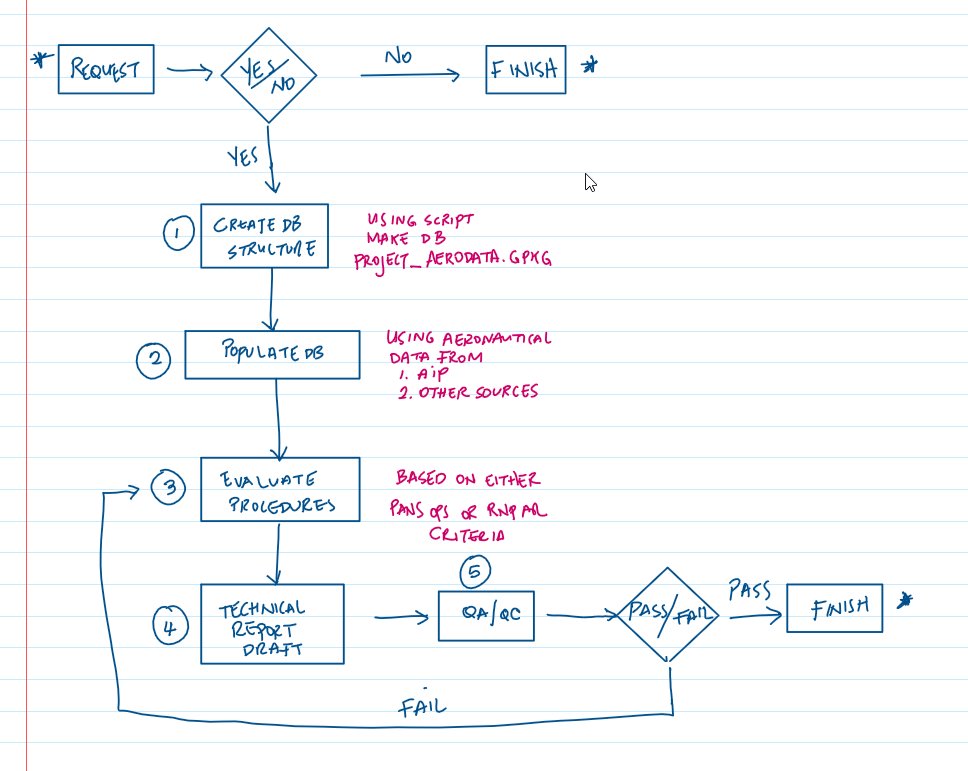 * REQUEST
YES/NO
NO
FINISH *
YES
1
CREATE DB
STRUCTURE
USING SCRIPT
MAKE DB
PROJECT_AERODATA.GPKG
2
POPULATE DB
USING AERONAUTICAL
DATA FROM
1. AIP
2. OTHER SOURCES
3
EVALUATE
PROCEDURES
BASED ON EITHER
PANS OPS OR RNP AR
CRITERIA
4
TECHNICAL
REPORT
DRAFT
5
QA/QC
PASS/FAIL
PASS
FINISH *
FAIL